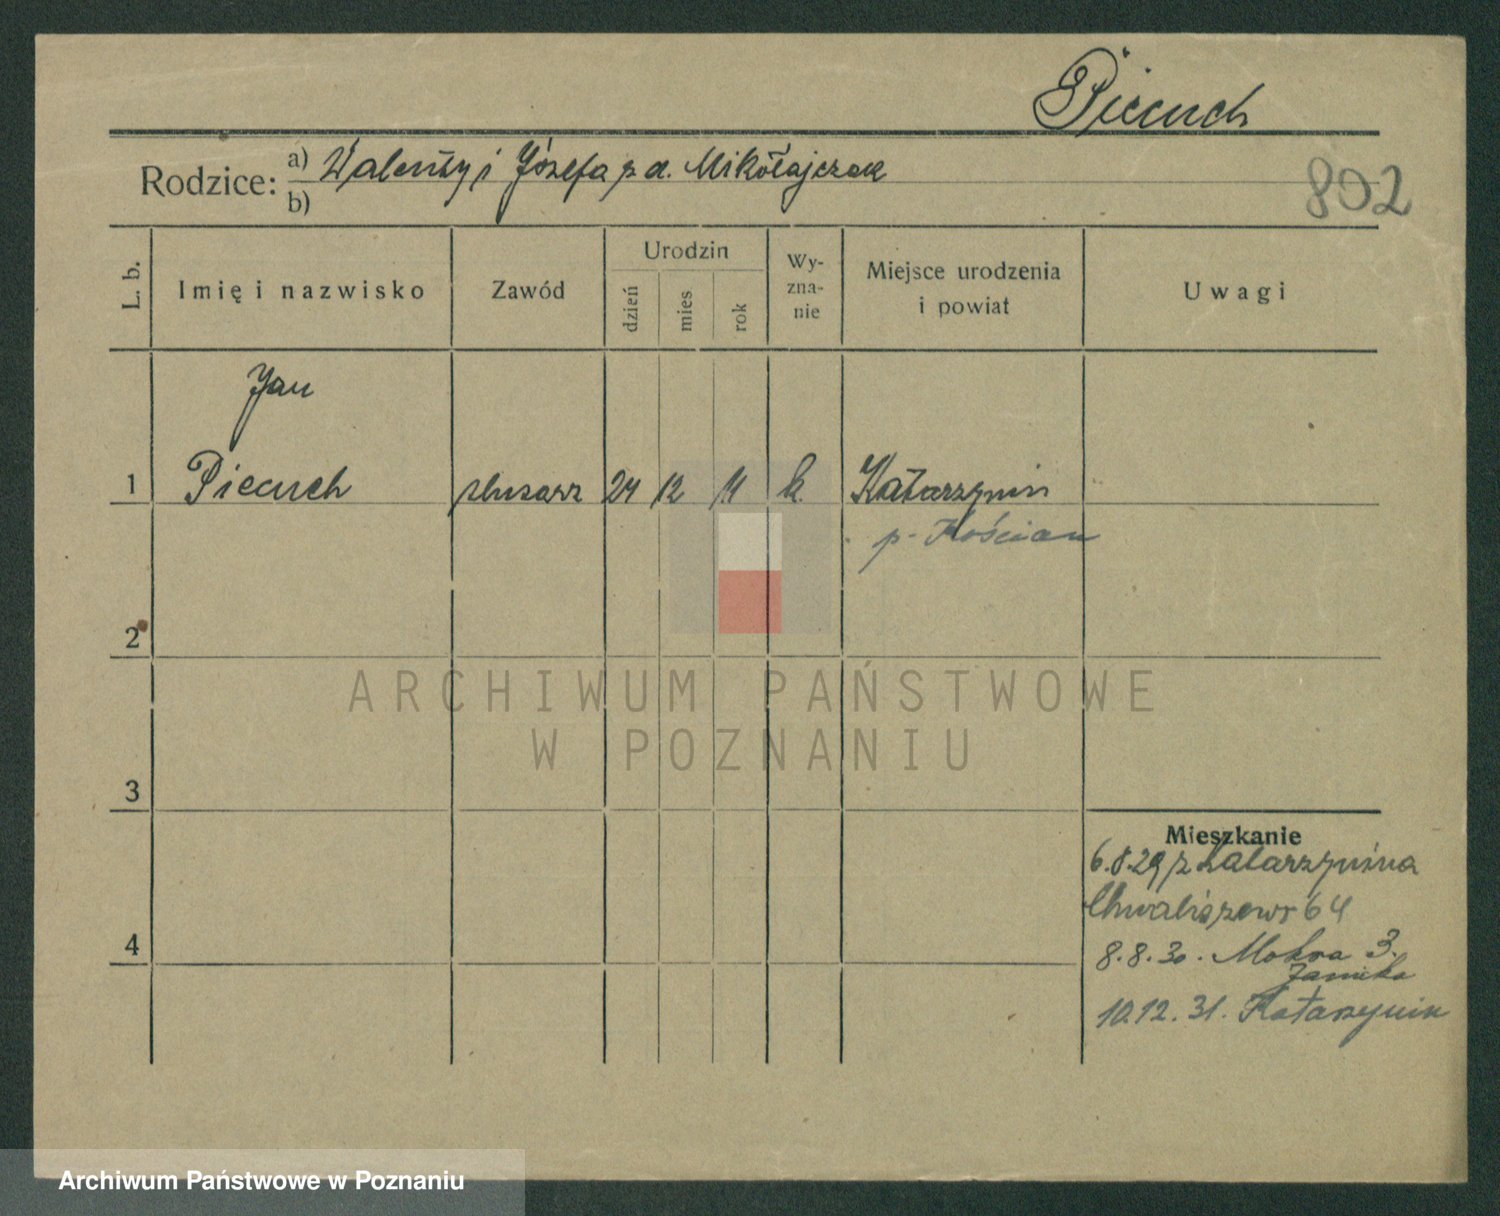 Piecuch
Rodzice: a) Walenty i Józefa z d. Mikołajczak
b)
802
L. b.
Imię i nazwisko
Zawód
Urodzin
dzień
mies
rok
Wy-
zna-
nie
Miejsce urodzenia
i powiat
Uwagi
Jan
1 Piecuch ślusarz 24 12 11 k. Katarzynin
p. Kościan
2
ARCHIWUM PAŃSTWOWE
W POZNANIU
3
Mieszkanie
6.8.29 z Katarzynina
Chwaliszewo 64
8.8.30. Mokra 3.
10.12.31. Katarzynin
4
Archiwum Państwowe w Poznaniu